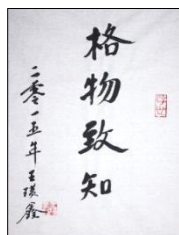 格物致知
二零一五年王瑛鑫